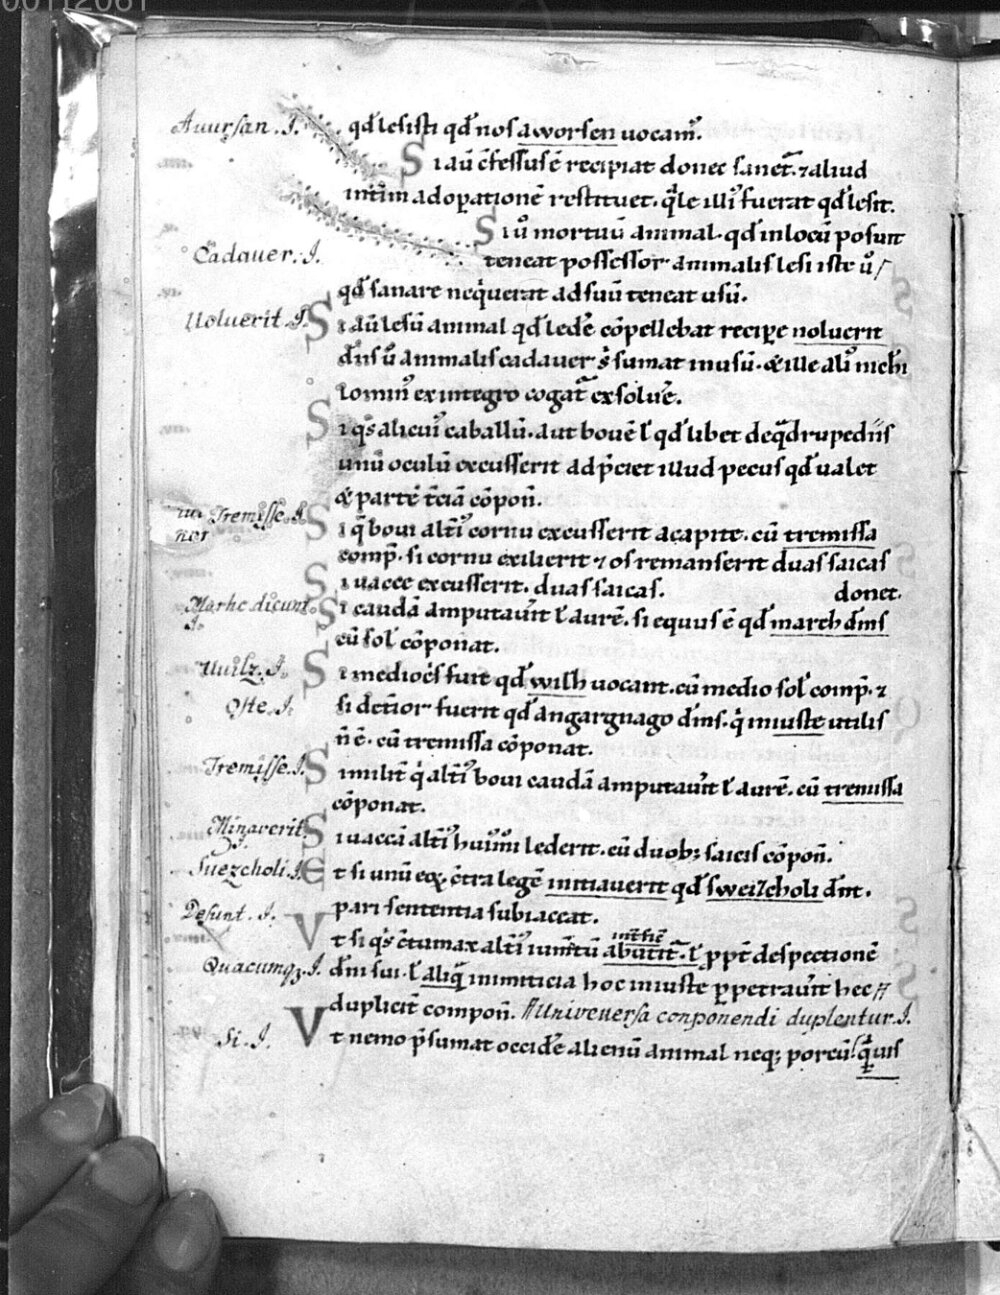 00112061
Auursan. J. qđ lesisti qđ nos aworsen uocam̃.
S i aũ c̃fessus ẽ recipiat donec sanet̃. ⁊ aliud
int̃im ad op̱atioñe restituet. q̃le illi᾿ fuerat qđ lesit.
S i ũ mortuũ animal. qđ in locũ posuit
Cadauer. J. teneat possessor animalis lesi iste ũ/
qđ sanare neq̇uerat ad suũ teneat usũ.
Uoluerit. J. S i aũ lesũ animal qđ leđe cõpellebat recipe noluerit
dñs ũ animalis cadauer s̓ sumat in usũ. & ille aliũ nichi
lomin᾿ ex integro cogat̃ exsolue̅.
S i q̓s alicui᾿ caballũ. aut bouẽ ł qđ libet de q̃drupediis
unũ oculũ excusserit adp̃ciet illud pecus qđ ualet
& partẽ t̃ciã cõpoñ.
Tremisse. J. S i q̓ boui alt̃i᾿ cornu excusserit a capite. cũ tremissa
ner comp̃. si cornu exilierit ⁊ os remanserit duas saicas
S i uacce excusserit. duas saicas. donet.
Marhc dicunt. J. S i caudã amputauit̃ ł aurẽ. si equus ẽ qđ march dñt
cũ sol̃ cõponat.
Uuilz. J. S i medioc̓s fuit qđ wilh uocant. cũ medio sol̃ comp̃. ⁊
Oste. J. si det̃ior fuerit qđ angargnago dñt. q̓ iniuste utilis
ñ ẽ. cũ tremissa cõponat.
Tremisse. J. S imilit̃ q̓ alt̃i᾿ boui caudã amputauit̃ ł aurẽ. cũ tremissa
cõponat.
Minaverit J. S i uaccã alt̃i᾿ hui᾿m̃i lederit. cũ duob; saicis cõpoñ.
Suezcholi. J. E t si unũ eoꝝ. c̃tra legẽ initiauerit qđ sweizcholi dñt.
Desunt. J. pari sententia subiaceat.
V t si q̓s c̃tumax alt̃i᾿ ium̃tũ abutit̃. ł ꝓpt̃ despectionẽ
Quacumqz. J. dñi sui. ł aliq̃ inimicicia hoc iniuste ꝑpetrauit̃ hec //
duplicit̃ compoñ. // Univeuersa conponendi duplentur. J.
Si. J. V t nemo p̃sumat occiđe alienũ animal neq; porcũ q̃uis